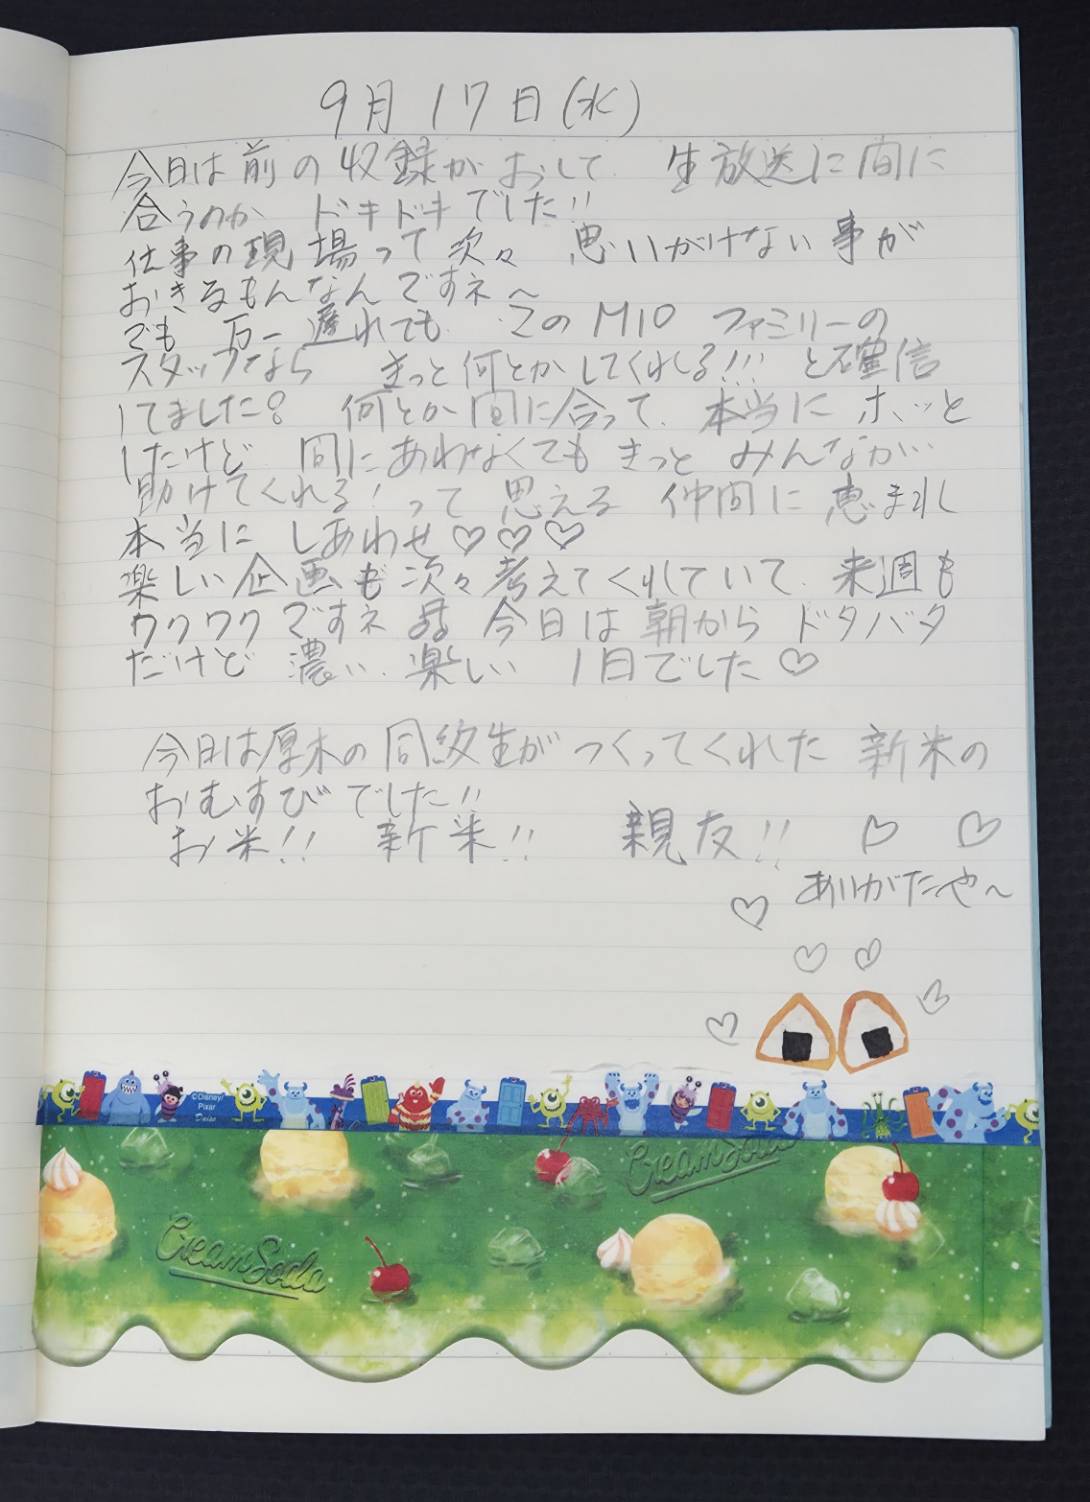 9月17日(水)
今日は前の収録がおして 生放送に間に
合うのか ドキドキでした!!
仕事の現場って次々 思いがけない事が
おきるもんなんですネ〜
でも 万一遅れても このM10 ファミリーの
スタッフなら きっと何とかしてくれる!!! と確信
してました。 何とか間に合って、本当にホッと
したけど 間にあわなくてもきっとみんなが…
助けてくれる!って 思える 仲間に恵まれ
本当に しあわせ♡♡♡
楽しい企画も次々考えてくれていて、来週も
ワクワクですネ 今日は朝から ドタバタ
だけど 濃い、楽しい 1日でした♡
今日は厚木の同級生がつくってくれた 新米の
おむすびでした!!
お米!! 新米!! 親友!! ♡ ♡
ありがたや〜
©Disney/
Pixar
Daiso
CreamSoda
CreamSoda